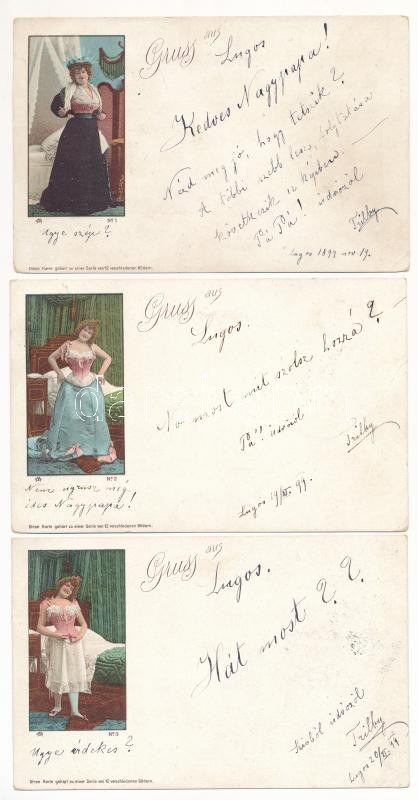 Gruss aus
Lugos
Kedves Nagypapa!
Nézd meg jó, hogy tetszik?
A többi szebb lesz, folytatása
következik képben. —
Pá Pá! üdvözöl
Trilby
Lugos 1899 nov 19.
No 1
Ugye szép?
Diese Karte gehört zu einer Serie von 12 verschiedenen Bildern.
Gruss aus
Lugos.
No most mit szólsz hozzá?
Pá! üdvözöl
Trilby
Lugos 19/XI. 99.
No 2
Nem ugrasz még
édes Nagypapa!
Diese Karte gehört zu einer Serie von 12 verschiedenen Bildern.
Gruss aus
Lugos.
Hát most??
üdvözöl
Trilby
Lugos 20/XI 99
No 3
Ugye érdekes?
Diese Karte gehört zu einer Serie von 12 verschiedenen Bildern.